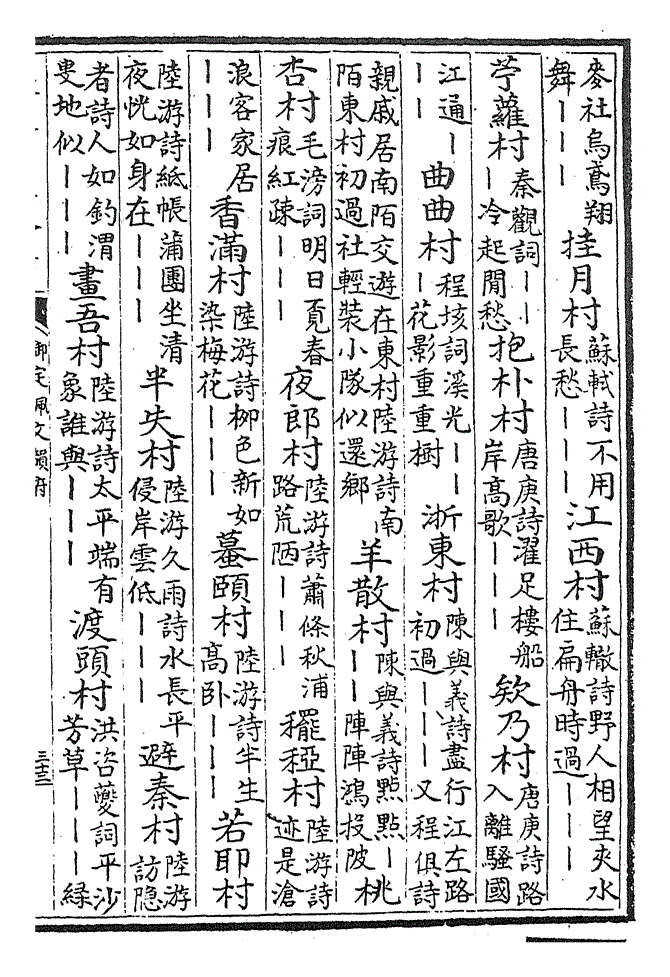 麥社烏鳶翔舞｜｜｜挂月村蘇軾詩不用長愁｜｜｜江西村蘇轍詩野人相望夾水住扁舟時過｜｜｜
苧蘿村秦觀詞｜｜｜冷起閒愁抱朴村唐庚詩濯足樓船岸高歌｜｜｜欸乃村唐庚詩路入離騷國
江通｜｜｜曲曲村程垓詞溪光｜｜｜花影重重樹浙東村陳與義詩盡行江左路初過｜｜｜又程俱詩
親戚居南陌交遊在東村陸游詩南陌東村初過社輕裝小隊似還鄉羊散村陳與義詩點點｜｜｜陣陣鴻投陂桃
杏村毛滂詞明日覓春痕紅疎｜｜｜夜郎村陸游詩蕭條秋浦路荒陋｜｜｜䆉稏村陸游詩迹是滄
浪客家居｜｜｜香滿村陸游詩柳色新如染梅花｜｜｜蟇頤村陸游詩半生高卧｜｜｜若耶村
陸游詩紙帳蒲團坐清夜恍如身在｜｜｜半失村陸游久雨詩水長平侵岸雲低｜｜｜避秦村陸游訪隐
者詩人如釣渭叟地似｜｜｜畫吾村陸游詩太平端有象誰與｜｜｜渡頭村洪咨夔詞平沙芳草｜｜｜綠
御定佩文韻府
三十三